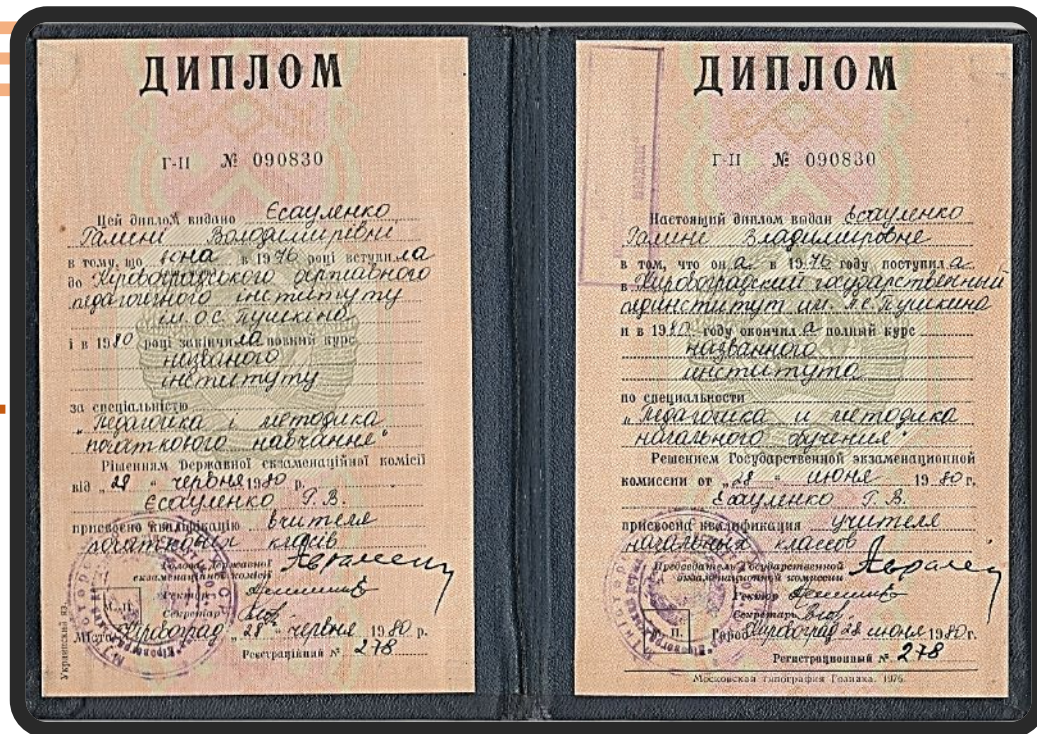 ДИПЛОМ
Г-II № 090830
Цей диплом видано Єсауленко
Галині Володимирівні
в тому, що вона в 1976 році вступила
до Кіровоградського державного
педагогічного інституту
ім. О.С. Пушкіна
і в 1980 році закінчила повний курс
названого
інституту
за спеціальністю
"Педагогіка і методика
початкового навчання"
Рішенням Державної екзаменаційної комісії
від "28" червня 1980 р.
Єсауленко Г.В.
присвоєно кваліфікацію вчителя
початкових класів
Голова Державної
екзаменаційної комісії
Ректор
Секретар
Місто Кіровоград "28" червня 1980 р.
Реєстраційний № 278
Украинский яз.
ДИПЛОМ
Г-II № 090830
Настоящий диплом выдан Есауленко
Галине Владимировне
в том, что она в 1976 году поступила
в Кировоградский государственный
пединститут им. А.С. Пушкина
и в 1980 году окончила полный курс
названного
института
по специальности
"Педагогика и методика
начального обучения"
Решением Государственной экзаменационной
комиссии от "28" июня 1980 г.
Есауленко Г.В.
присвоена квалификация учителя
начальных классов
Председатель Государственной
экзаменационной комиссии
Ректор
Секретарь
М. П.
Город Кировоград 28 июня 1980 г.
Регистрационный № 278
Московская типография Гознака. 1976.